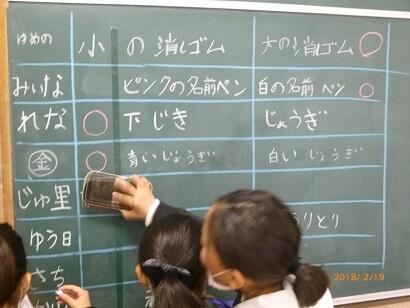 ゆめの 小 の 消しゴム 大の消しゴム ○
みいな ピンクの名前ペン 白の名前ペン ○
れな ○ 下じき じょうぎ
金 ○ 青いじょうぎ 白いじょうぎ
じゅ里
ゆう日 うりとり
さち
2018/2/19